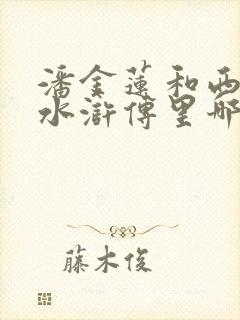 潘金莲和西
水浒传里哪
藤木俊